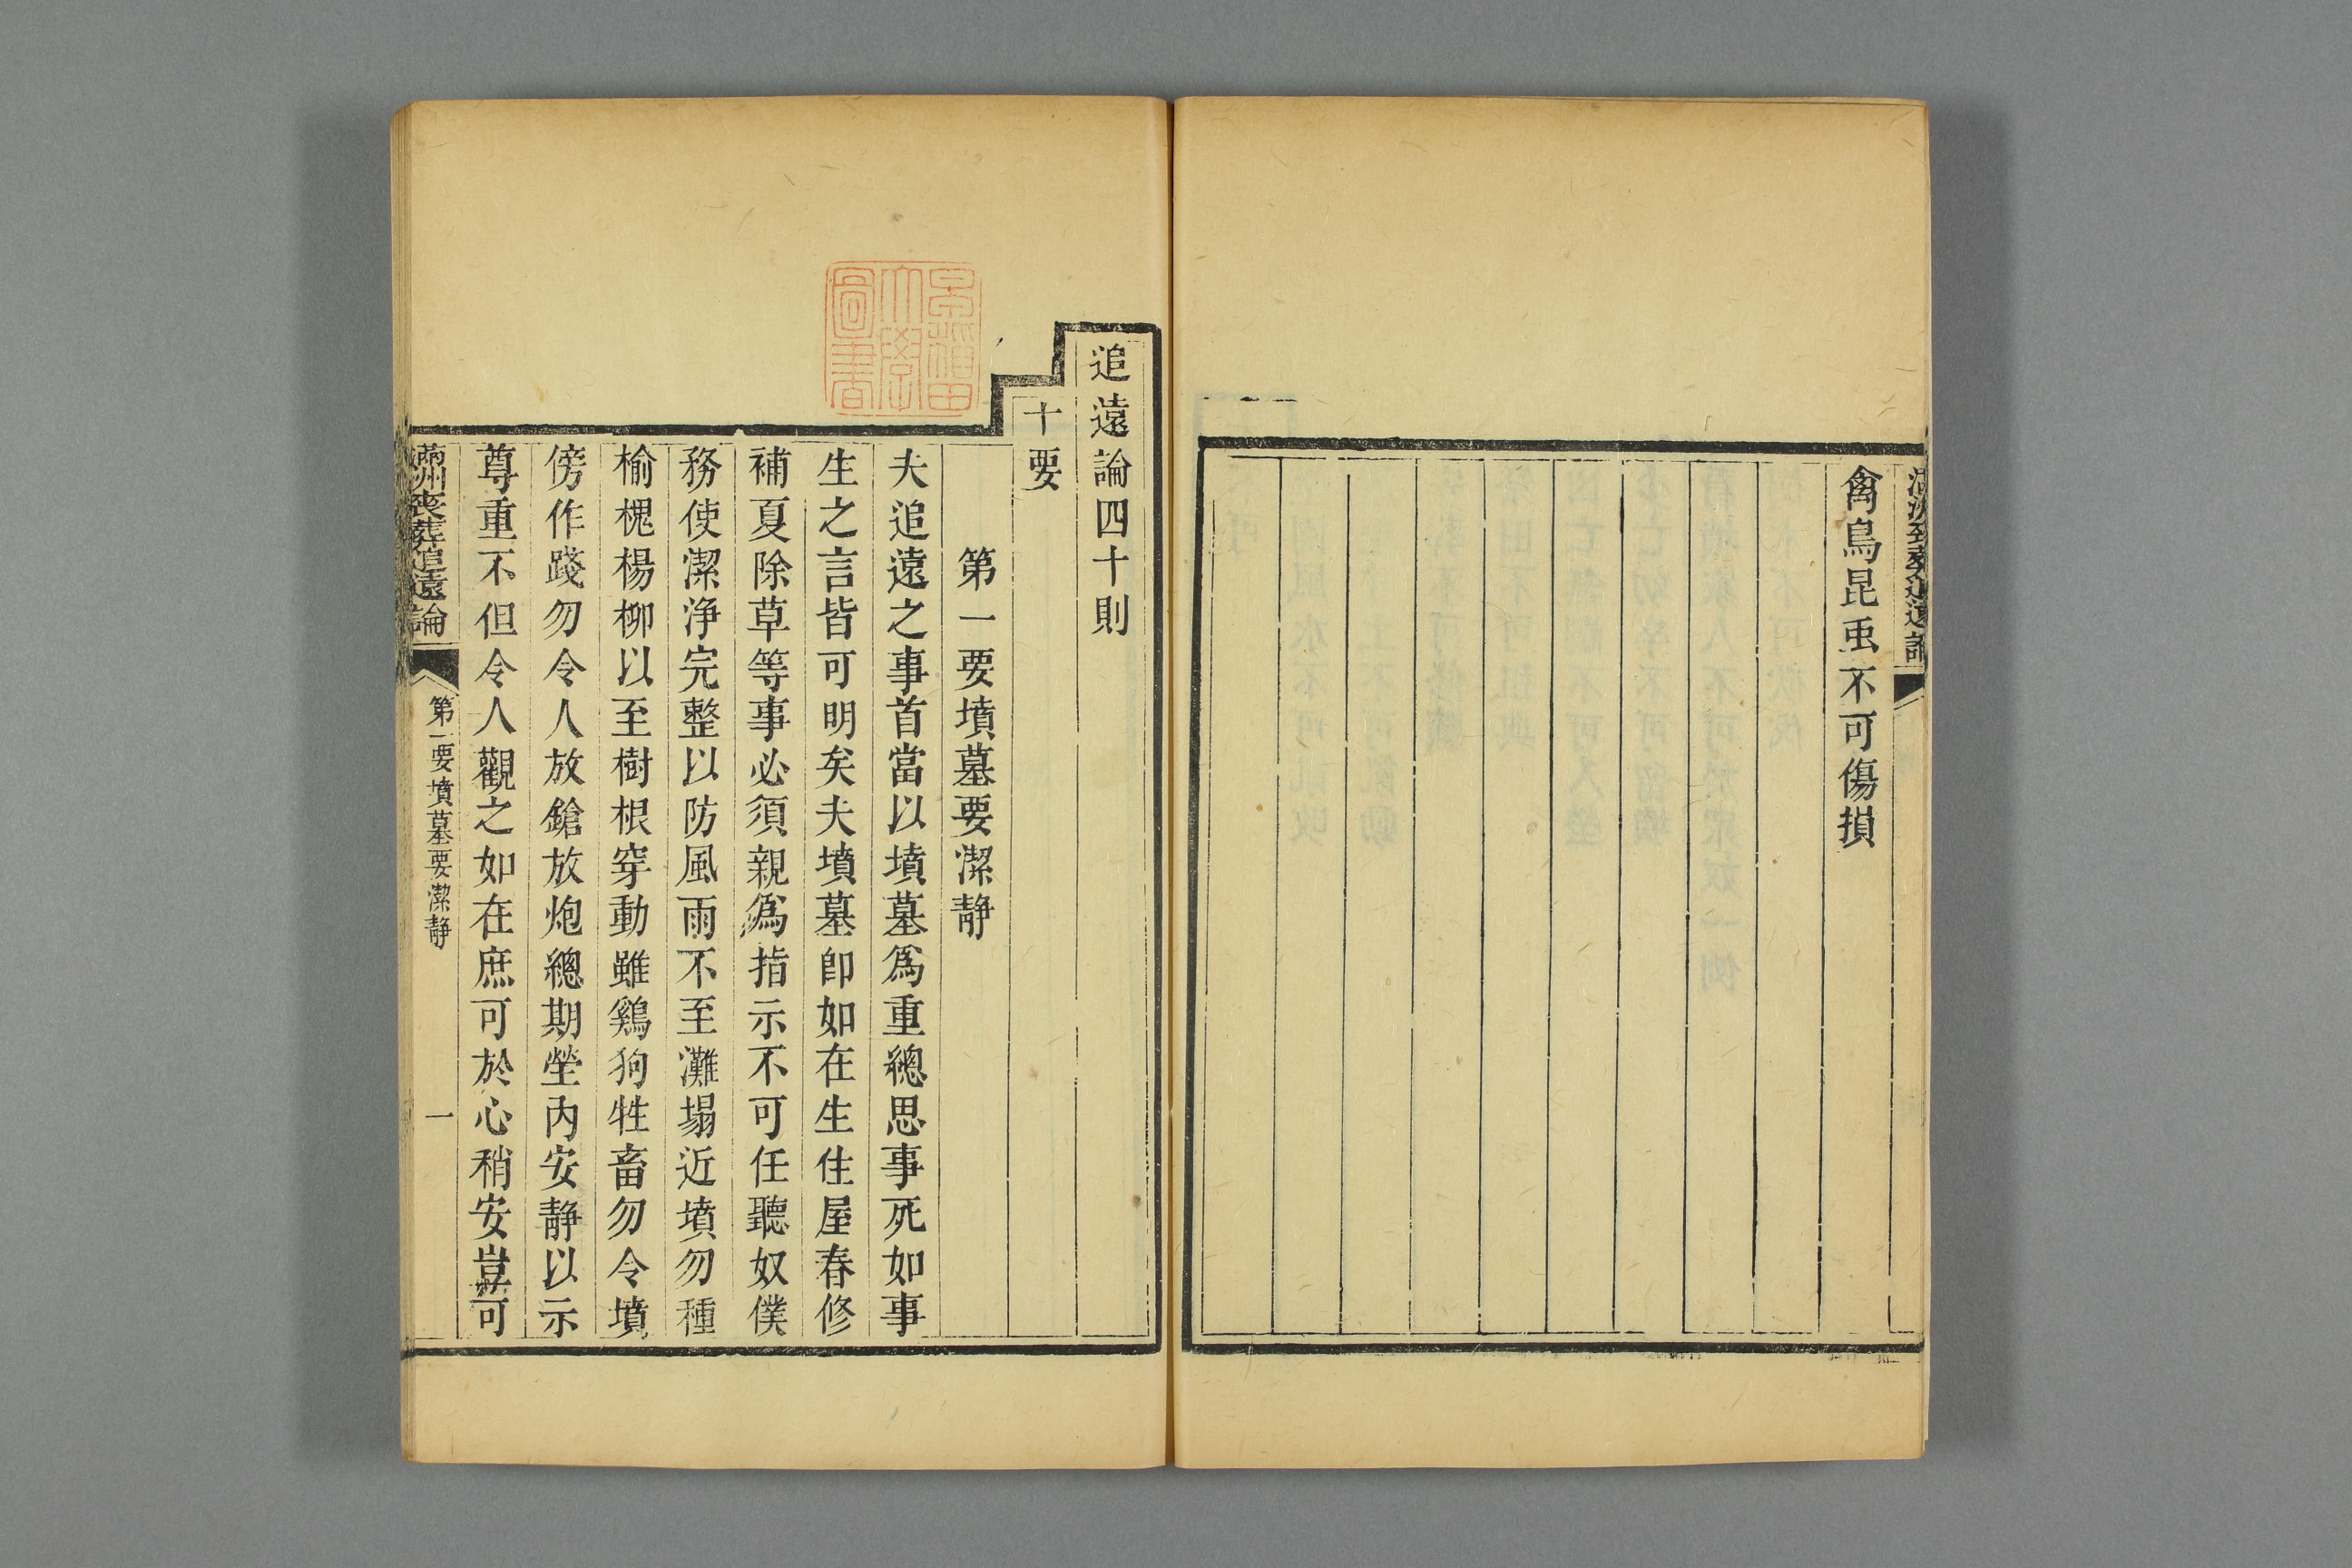 禽鳥昆虫不可傷損
追遠論四十則
十要
第一要墳墓要潔靜
夫追遠之事首當以墳墓爲重總思事死如事
生之言皆可明矣夫墳墓即如在生住屋春修
補夏除草等事必須親爲指示不可任聽奴僕
務使潔淨完整以防風雨不至灘塌近墳勿種
榆槐楊柳以至樹根穿動雖鷄狗牲畜勿令墳
傍作踐勿令人放鎗放炮總期塋內安靜以示
尊重不但令人觀之如在庶可於心稍安豈可
滿洲喪葬追遠論
第一要墳墓要潔靜
一